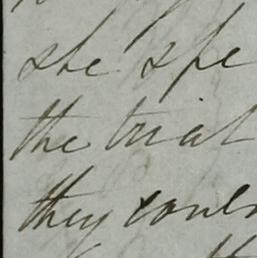 she spe
the trial
they coul